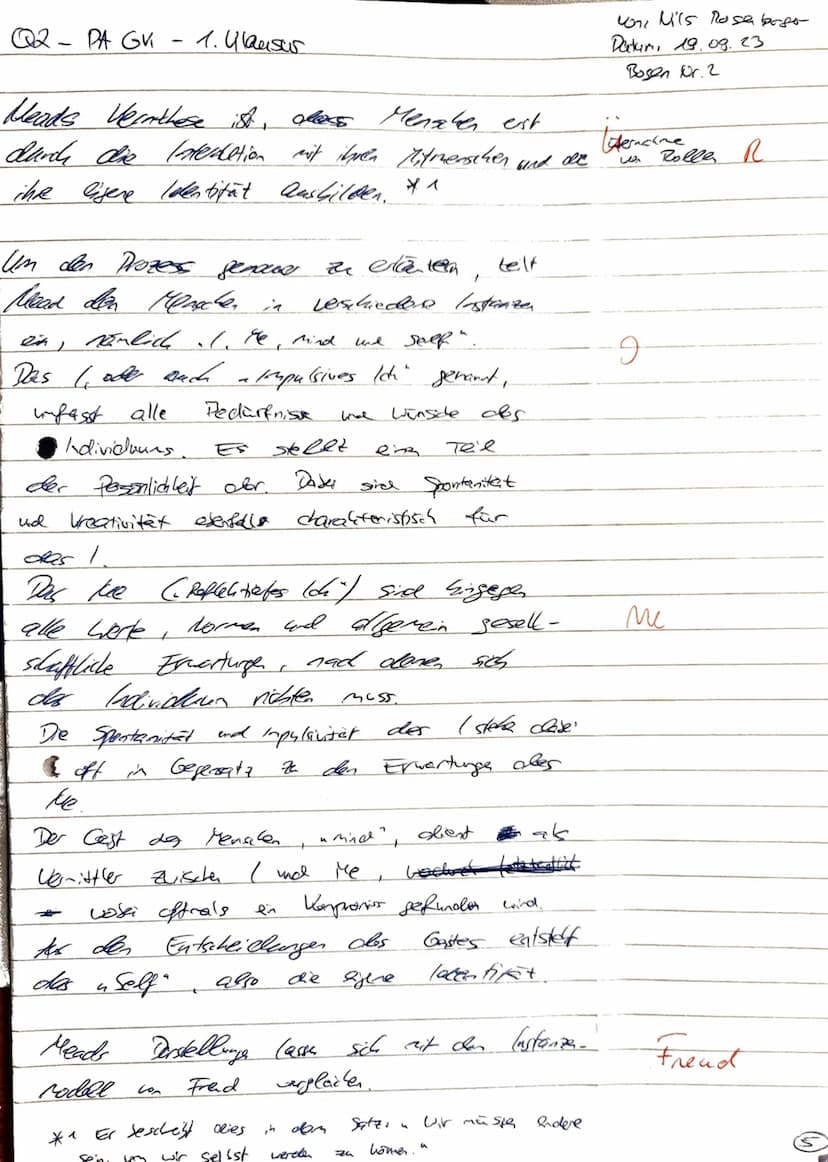 Q2 - PA GK - 1. Klausur
von: Nils Rosenberger
Datum: 19.09.23
Bogen Nr. 2
Meads Kernthese ist, dass Menschen erst
durch die Interaktion mit ihren Mitmenschen und der Übernahme von Rollen R
ihre eigene Identität ausbilden. *1
Um den Prozess genauer zu erläutern, teilt
Mead den Menschen in verschiedene Instanzen
ein, nämlich „I, Me, mind und self“.
Das I, oder auch „impulsives Ich“ genannt,
umfasst alle Bedürfnisse und Wünsche des
Individuums. Es stellt einen Teil
der Persönlichkeit dar. Dabei sind Spontanität
und Kreativität ebenfalls charakteristisch für
das I.
Das Me („Reflektiertes Ich“) sind hingegen
alle Werte, Normen und allgemein gesell-
Me
schaftliche Erwartungen, nach denen sich
das Individuum richten muss.
Die Spontanität und Impulsivität des I stehe dabei
oft in Gegensatz zu den Erwartungen des
Me.
Der Geist des Menschen, „mind“, dient als
Vermittler zwischen I und Me,
wobei oftmals ein Kompromiss gefunden wird.
Aus den Entscheidungen des Geistes entsteht
das „Self“, also die eigene Identität.
Meads Darstellunge lassen sich mit dem Instanzen-
modell von Freud vergleichen.
Freud
*1 Er beschreibt dies in dem Satz: „Wir müssen andere
sein, um wir selbst werden zu können.“
5